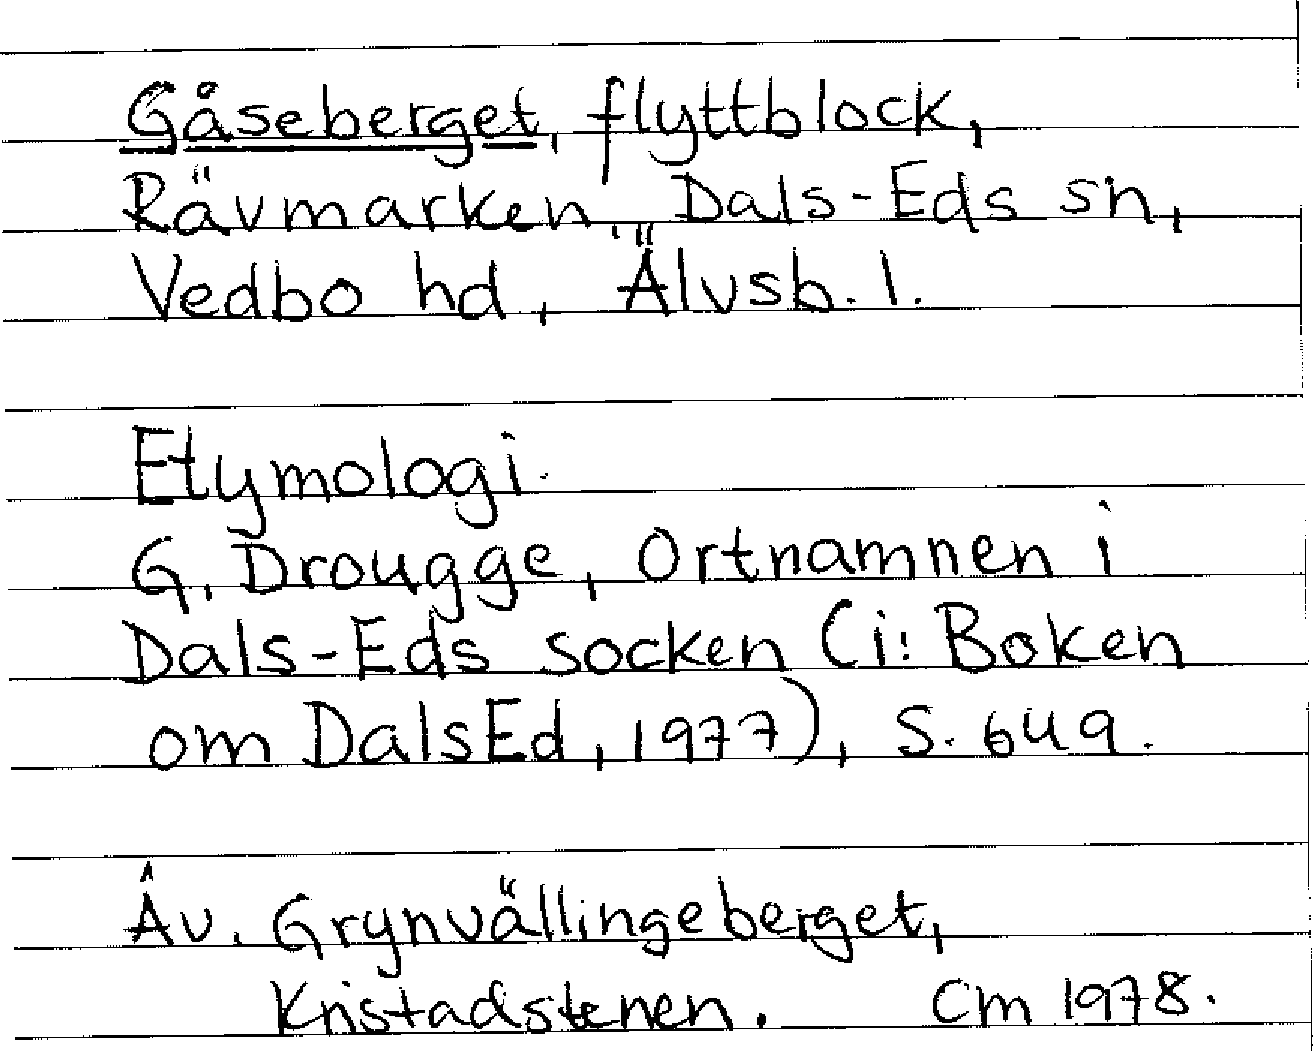 Gåseberget, flyttblock,
Rävmarken, Dals-Eds sn,
Vedbo hd, Älvsb. l.
Etymologi.
G. Drougge, Ortnamnen i
Dals-Eds socken (i: Boken
om DalsEd, 1977), s. 649.
Äv. Grynvällingeberget,
Kristadstenen. Cm 1978.